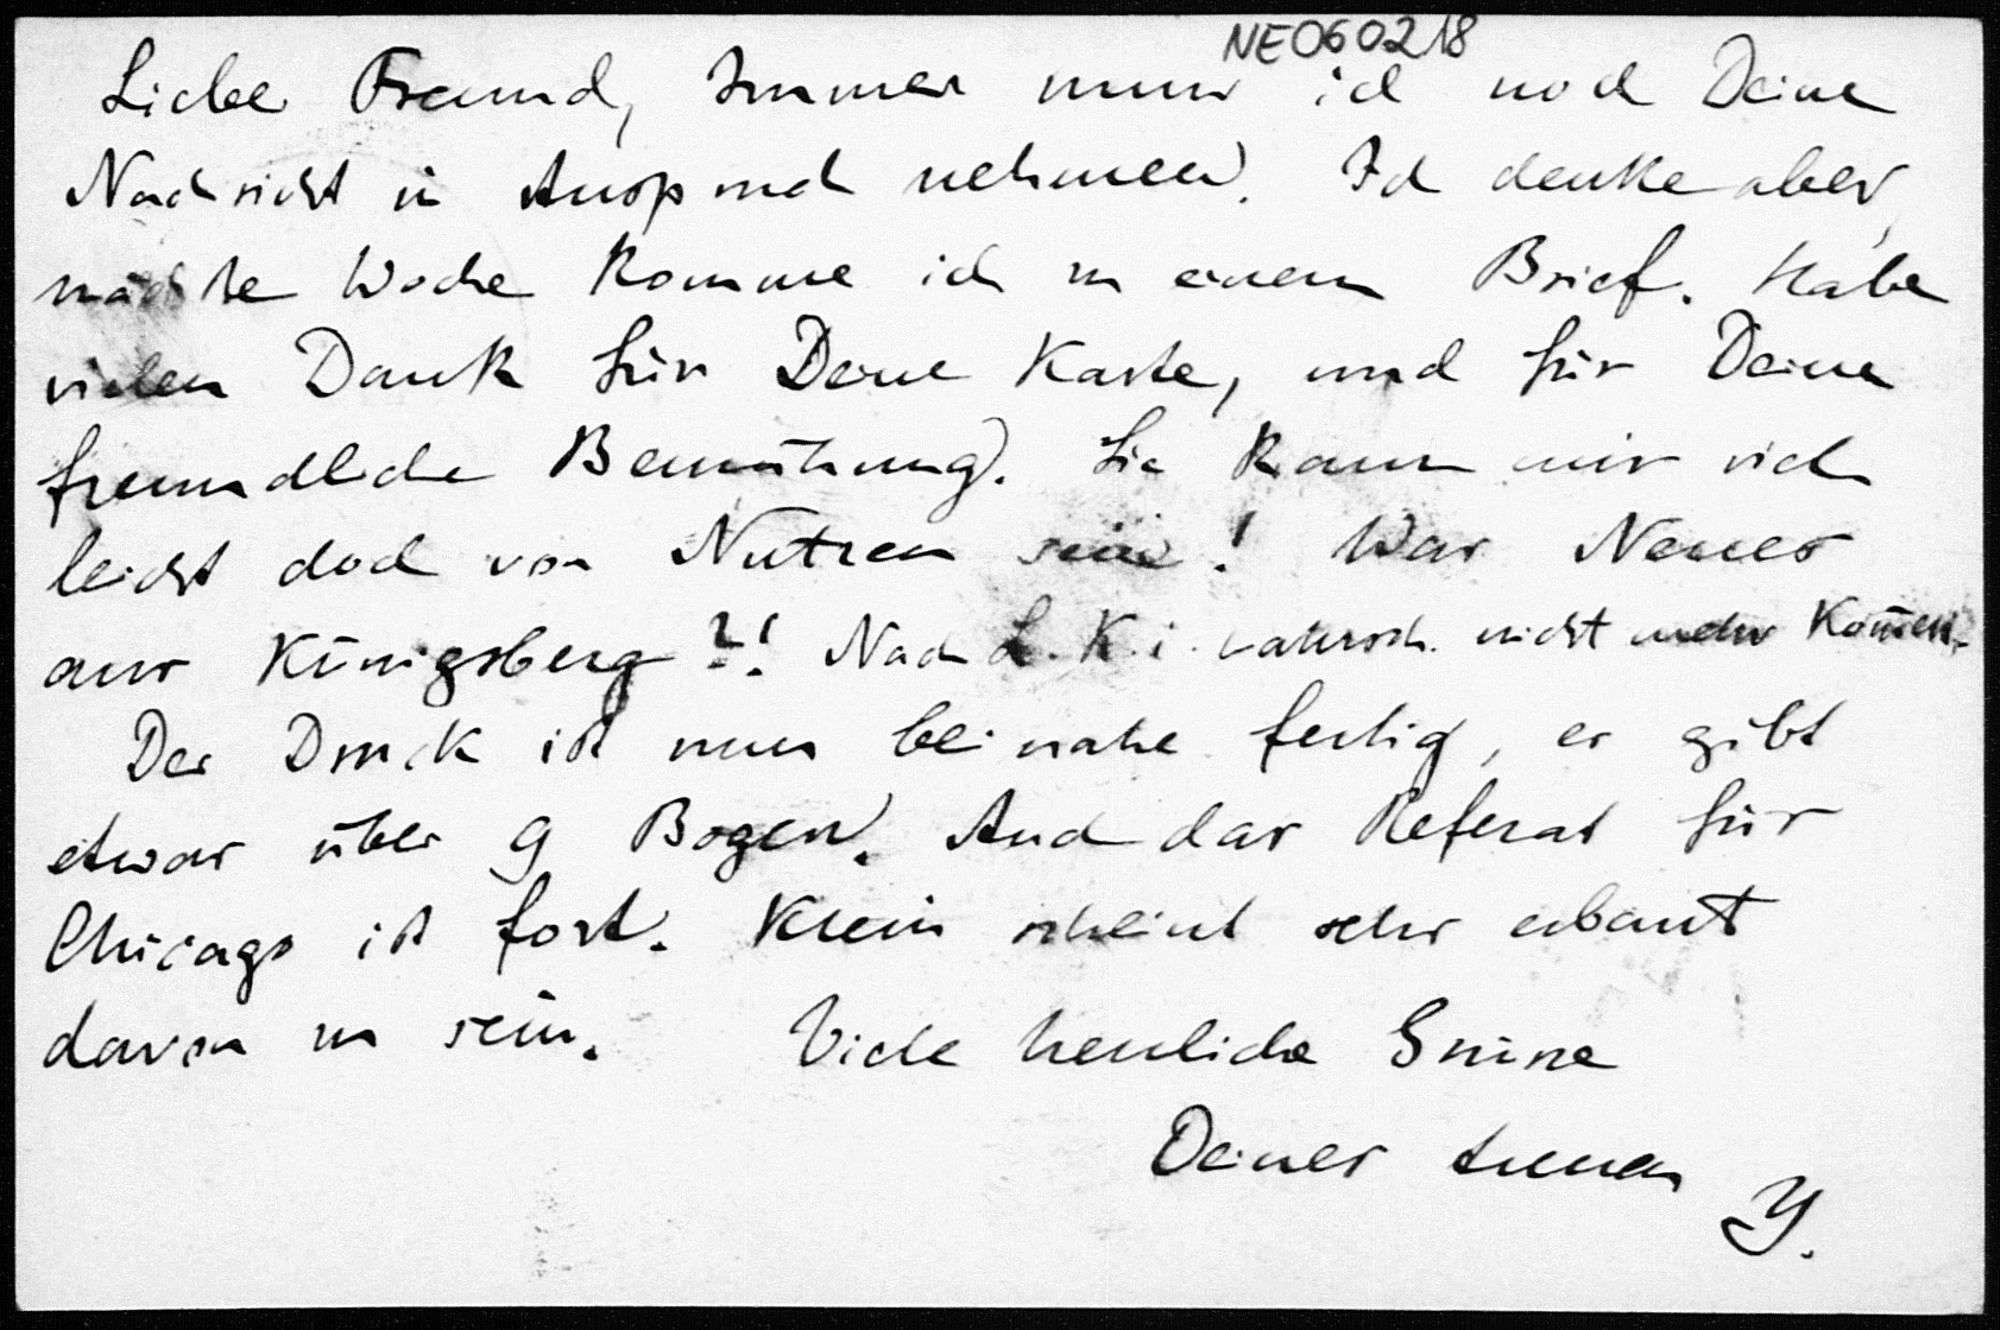 NE060218
Lieber Freund, Immer muss ich noch Deine
Nachsicht in Anspruch nehmen. Ich denke aber,
nächste Woche komme ich zu einem Brief. Habe
vielen Dank für Deine Karte, und für Deine
freundliche Bemühung. Sie kann mir viel
leicht doch von Nutzen sein! Was Neues
aus Königsberg?! Nach L. K. i. wahrsch. nicht mehr kom̄en.
Der Druck ist nun beinahe fertig, es gibt
etwas über 9 Bogen. Auch das Referat für
Chicago ist fort. Klein scheint sehr erbaut
davon zu sein. Viele herzliche Grüsse
Deines treuen